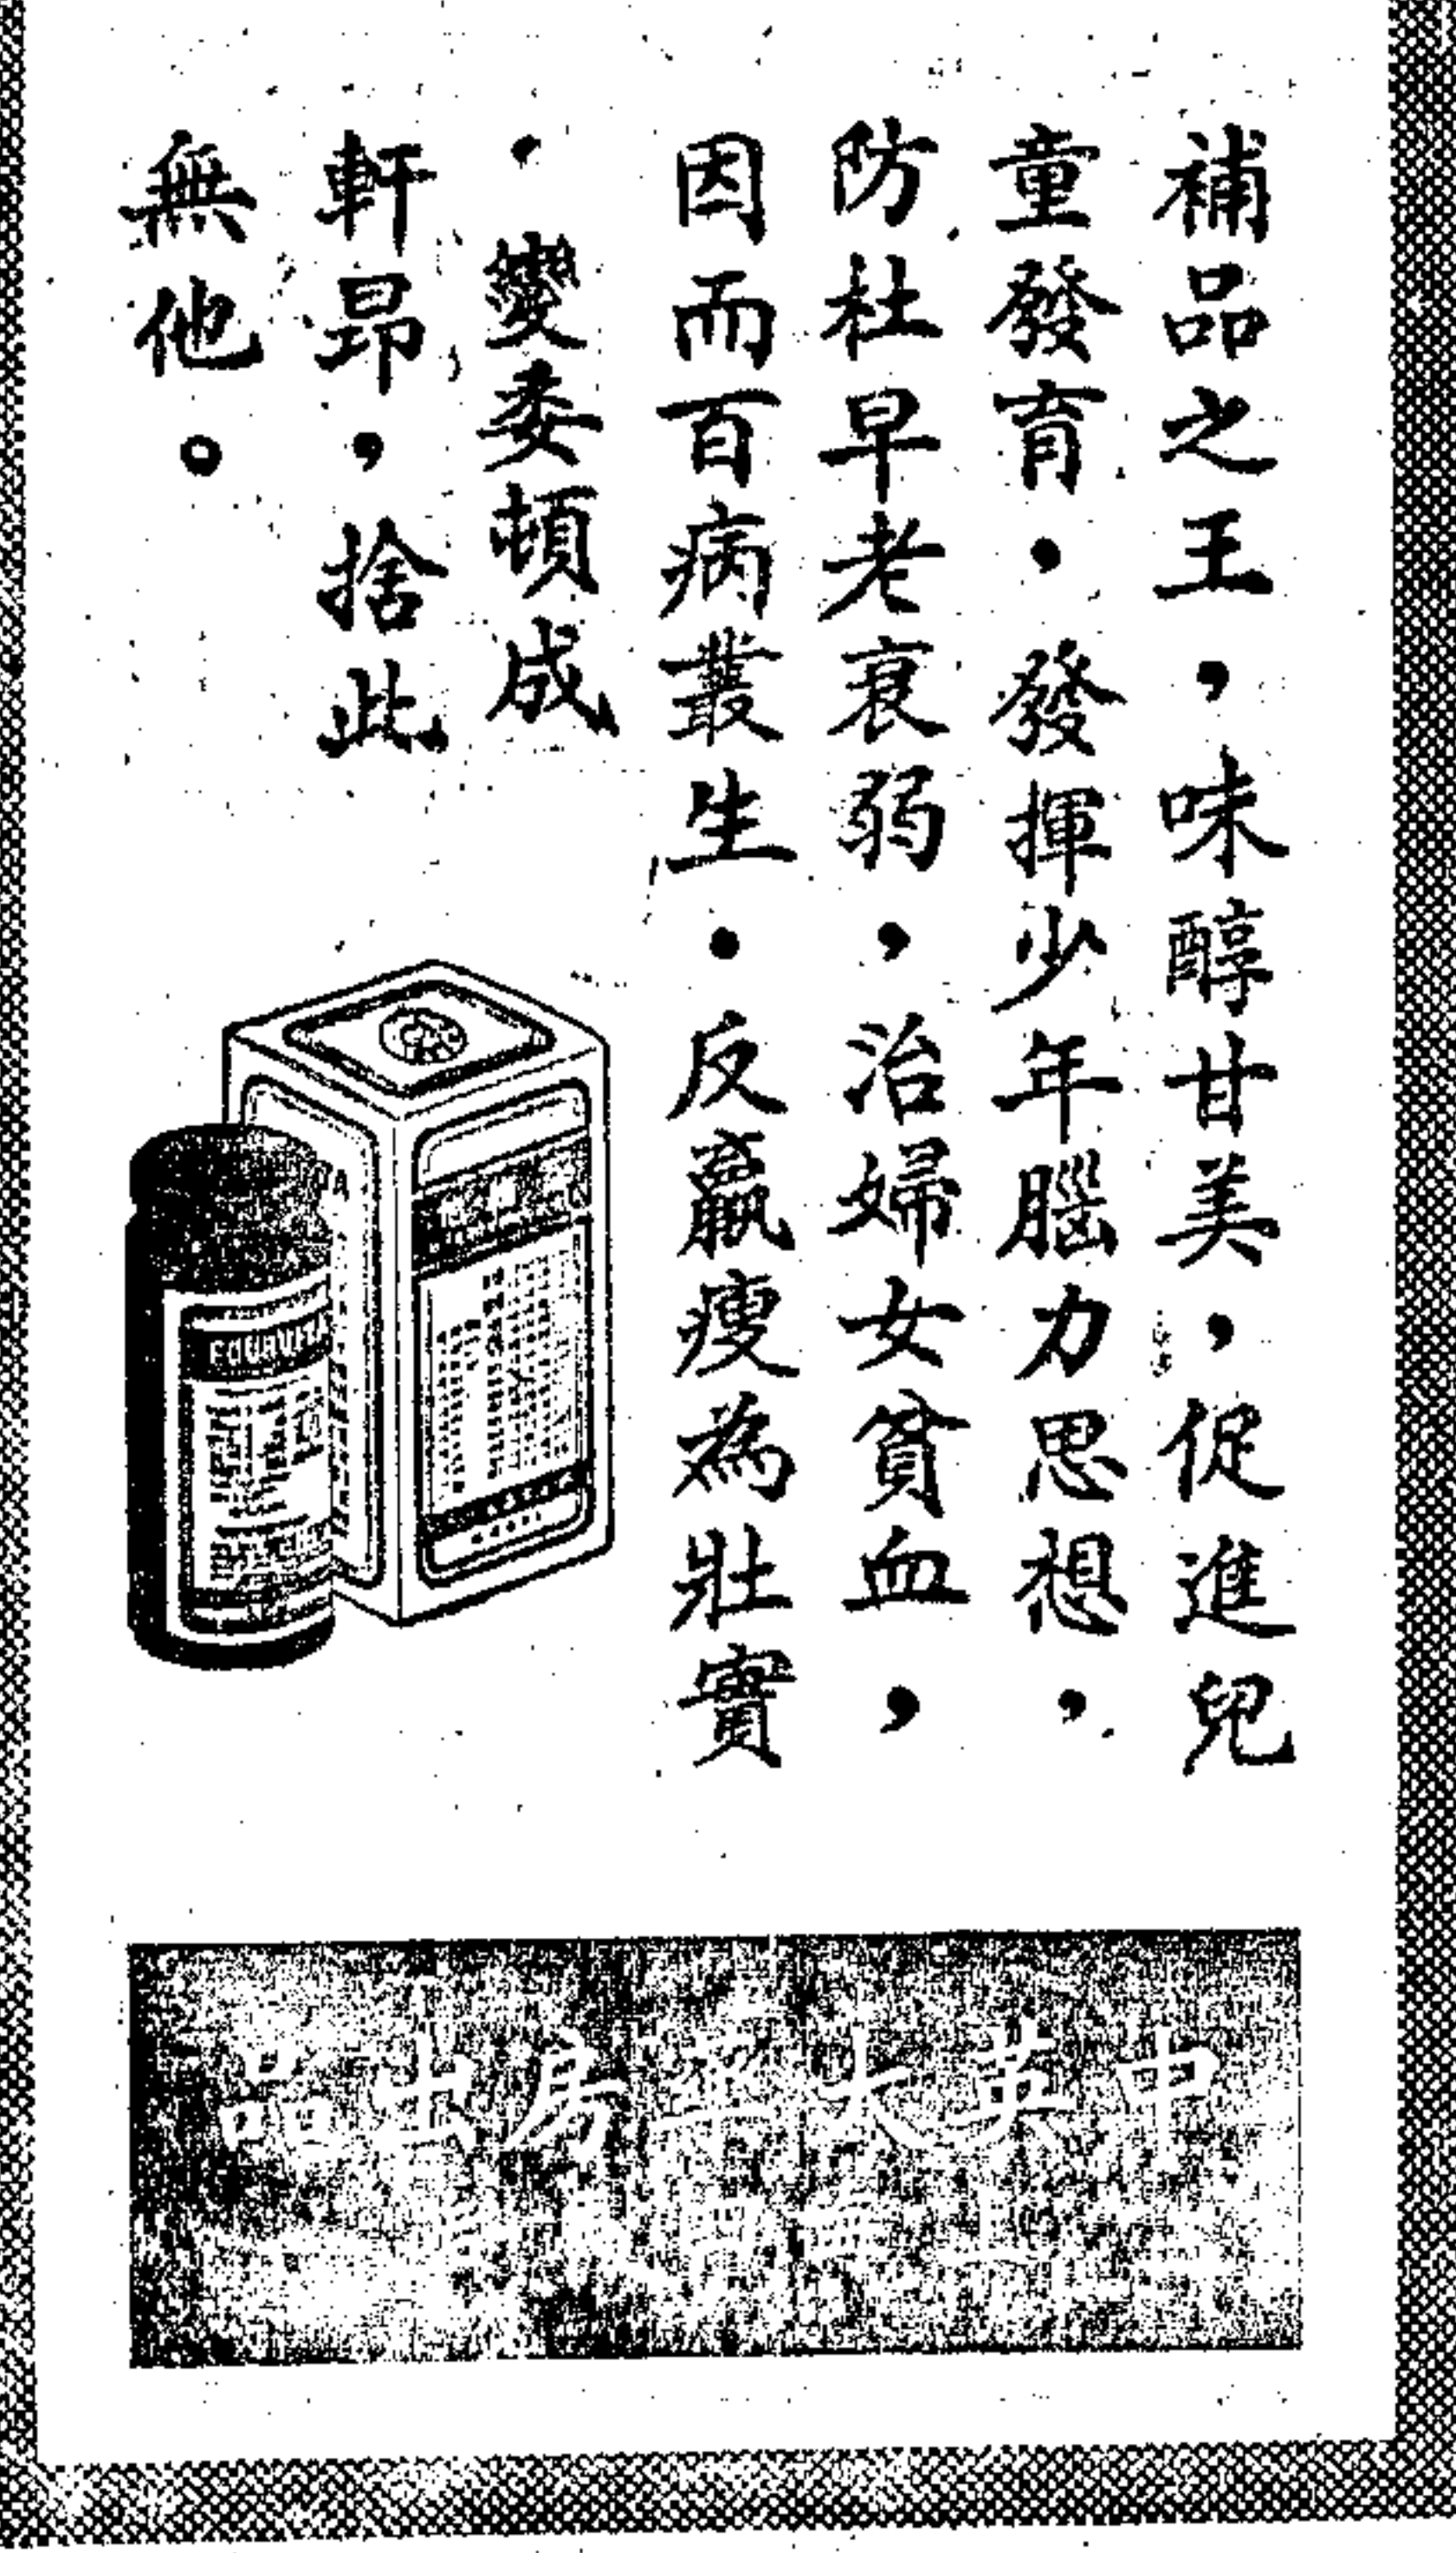 補品之王，味醇甘美，促進兒
童發育．發揮少年腦力思想，
防杜早老衰弱，治婦女貧血，
因而百病叢生．反羸瘦為壯實
．變委頓成
軒昂，捨此
無他。
中英大藥房出品